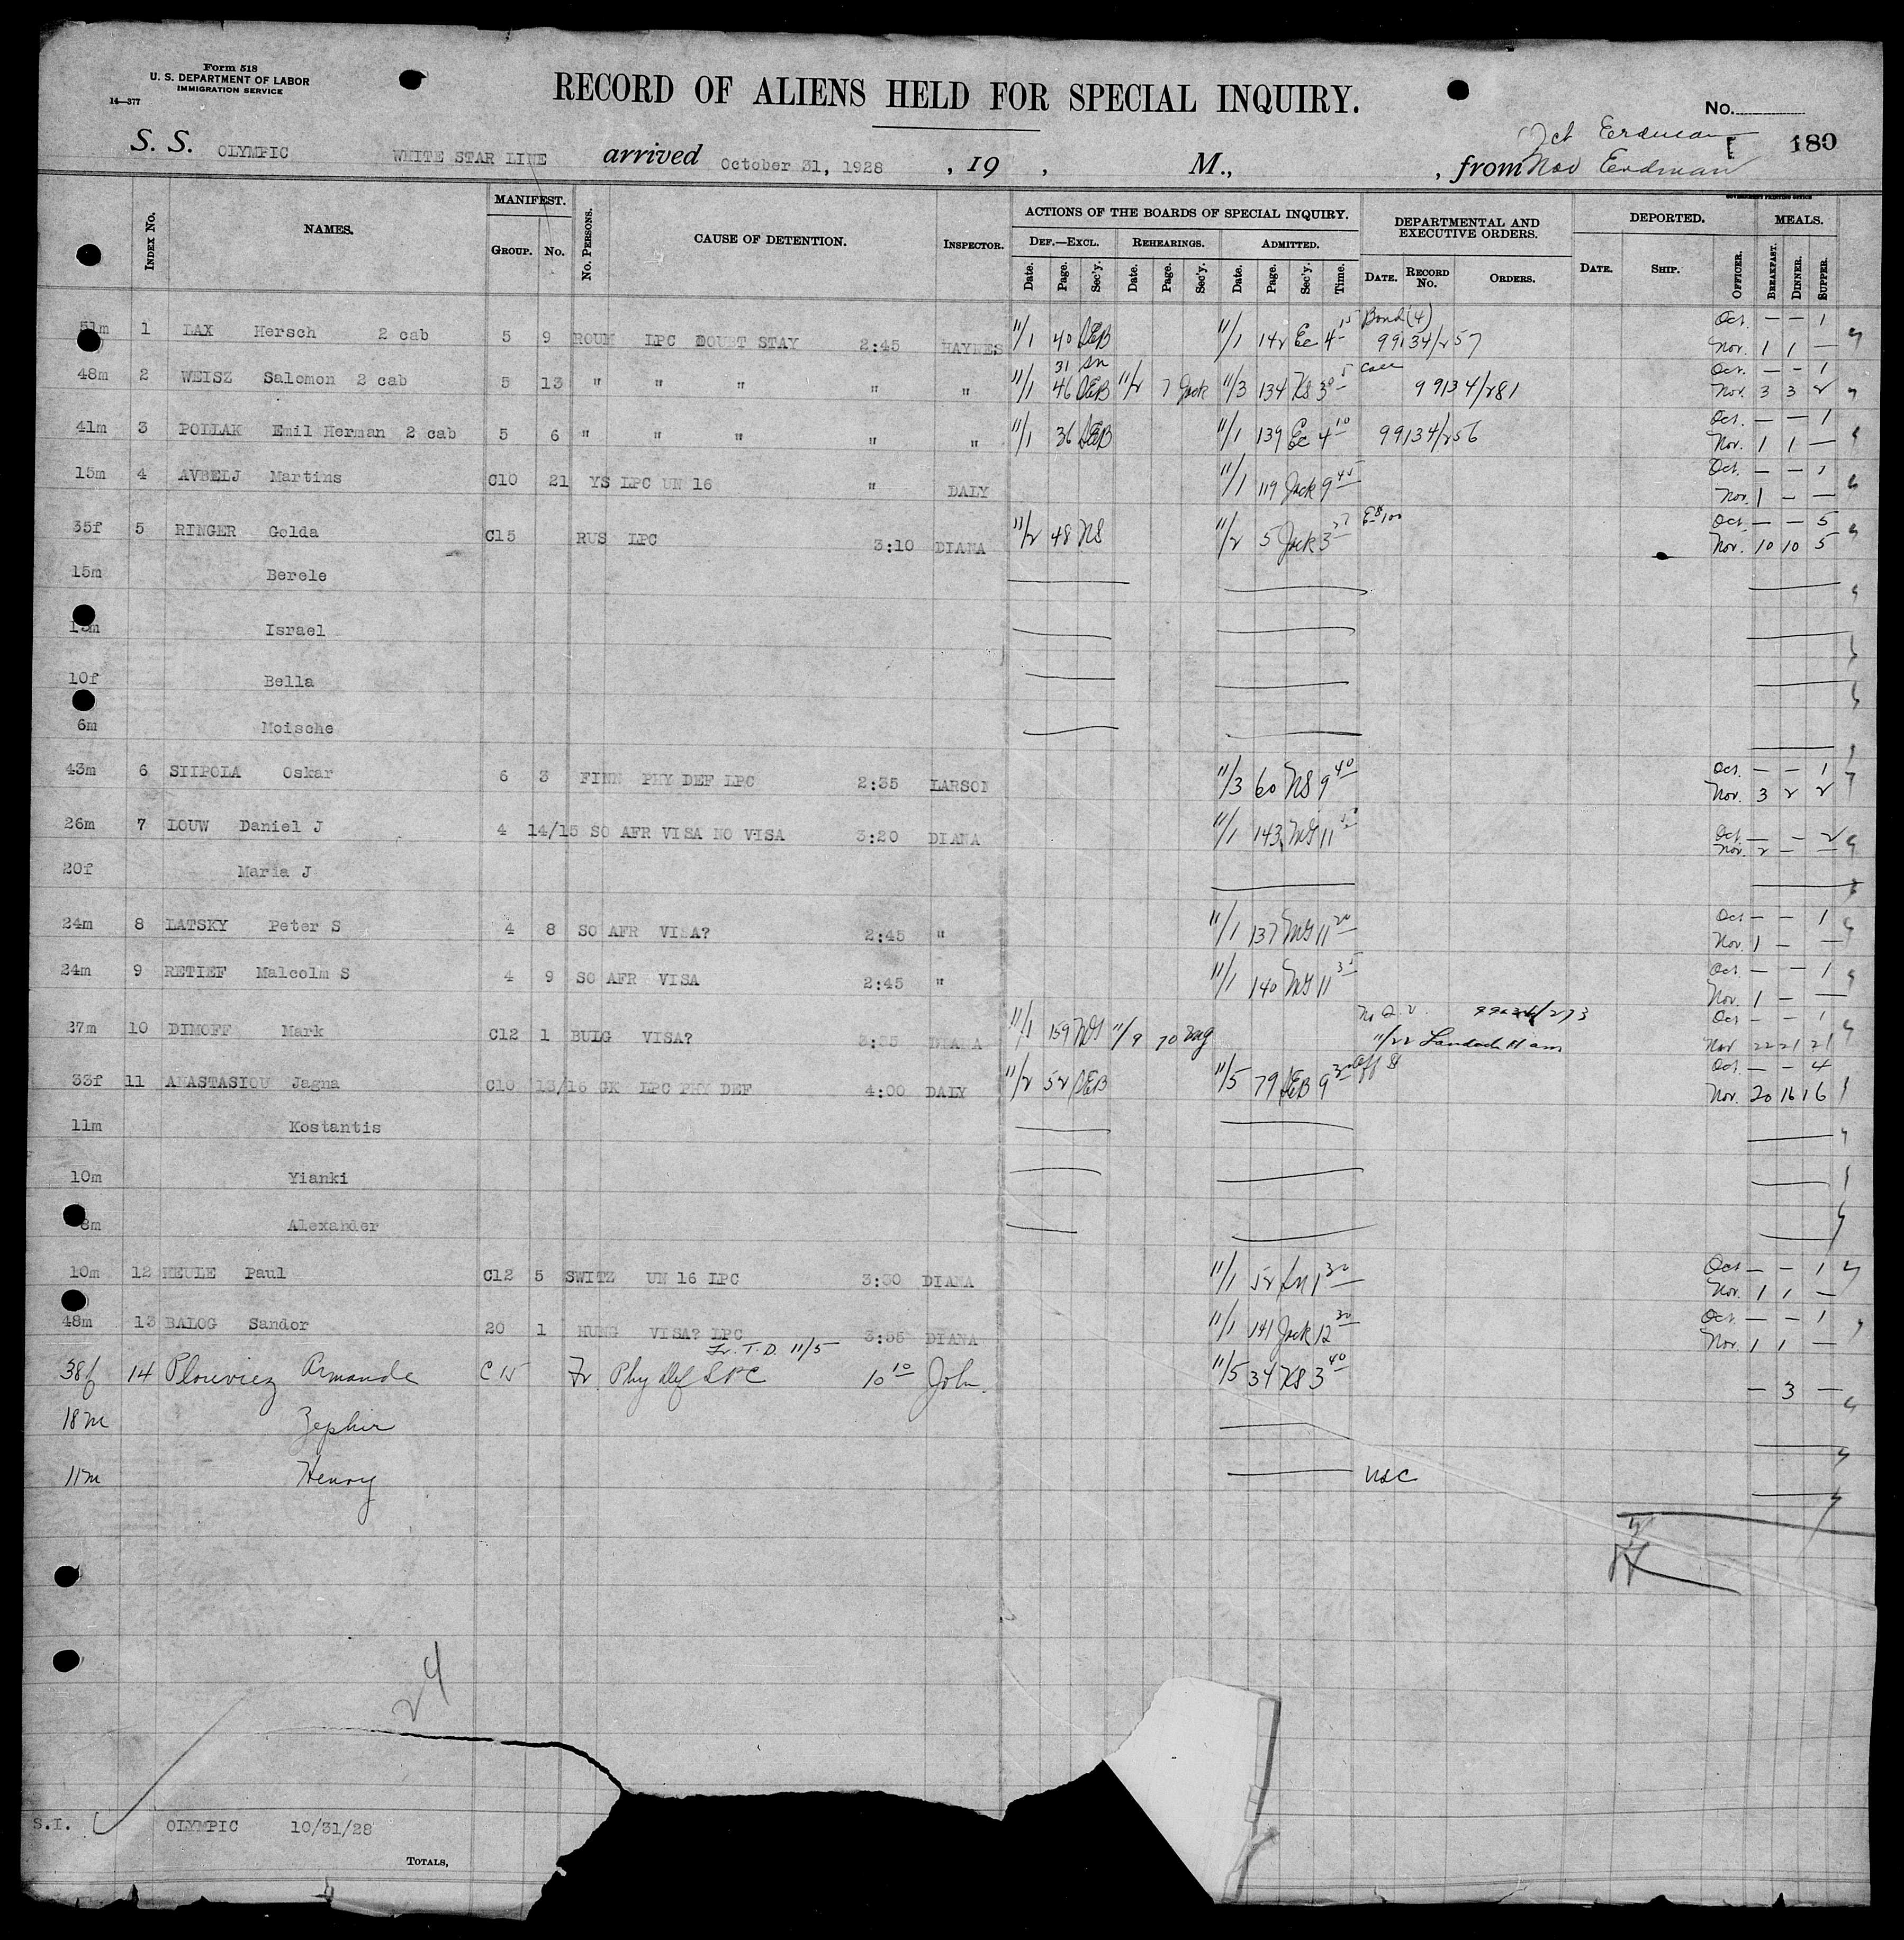 Form 518
U. S. DEPARTMENT OF LABOR
IMMIGRATION SERVICE
14—377
RECORD OF ALIENS HELD FOR SPECIAL INQUIRY.
No.
180
S. S. OLYMPIC WHITE STAR LINE arrived October 31, 1928 , 19 , M., , from Nov Erdman
Oct Erdman
GOVERNMENT PRINTING OFFICE
INDEX No. NAMES. MANIFEST. No. PERSONS. CAUSE OF DETENTION. INSPECTOR. ACTIONS OF THE BOARDS OF SPECIAL INQUIRY. DEPARTMENTAL AND EXECUTIVE ORDERS. DEPORTED. MEALS.
GROUP. No. DEF.—EXCL. REHEARINGS. ADMITTED.
Date. Page. Sec'y. Date. Page. Sec'y. Date. Page. Sec'y. Time. DATE. RECORD No. ORDERS. DATE. SHIP. OFFICER. BREAKFAST. DINNER. SUPPER.
51m 1 LAX Hersch 2 cab 5 9 ROUM LPC DOUBT STAY 2:45 HAYNES 11/1 40 SEB 11/1 142 Ec 4 15 Bond (4) 99134/257 Oct. — — 1
Nov. 1 1 —
48m 2 WEISZ Salomon 2 cab 5 13 " " " " " 11/1 31 46 SEB 11/2 7 Jack 11/3 134 NS 3 99134/281 Oct. — — 1
Nov. 3 3 2
41m 3 POLLAK Emil Herman 2 cab 5 6 " " " " " 11/1 36 SEB 11/1 139 Ec 4 10 99134/256 Oct. — — 1
Nov. 1 1 —
15m 4 AVBELJ Martins C10 21 YS LPC UN 16 " DALY 11/1 119 Jack 9 45 Oct. — — 1
Nov. 1 — —
35f 5 RINGER Golda C15 RUS LPC 3:10 DIANA 11/2 48 NS 11/2 5 Jack 3 Oct. — — 5
Nov. 10 10 5
15m Berele
13m Israel
10f Bella
6m Moische
43m 6 SIIPOLA Oskar 6 3 FINN PHY DEF LPC 2:35 LARSON 11/3 60 NS 9 40 Oct. — — 1
Nov. 3 2 2
26m 7 LOUW Daniel J 4 14/15 SO AFR VISA NO VISA 3:20 DIANA 11/1 143 MG 11 Oct. — — 2
Nov. 2 — —
20f Maria J
24m 8 LATSKY Peter S 4 8 SO AFR VISA? 2:45 " 11/1 137 MG 11 20 Oct — — 1
Nov. 1 — —
24m 9 RETIEF Malcolm S 4 9 SO AFR VISA 2:45 " 11/1 140 MG 11 35 Oct. — — 1
Nov. 1 — —
27m 10 DIMOFF Mark C12 1 BULG VISA? 3:35 DIANA 11/1 159 11/9 70 11/22 Oct — — 1
Nov 22 21 21
33f 11 ANASTASIOU Jagna C10 13/16 GK LPC PHY DEF 4:00 DALY 11/2 52 SEB 11/5 79 SEB 9 30 Oct. — — 4
Nov. 20 16 16
11m Kostantis
10m Yianki
8m Alexander
10m 12 KEULE Paul C12 5 SWITZ UN 16 LPC 3:30 DIANA 11/1 52 1 30 Oct — — 1
Nov. 1 1 —
48m 13 BALOG Sandor 20 1 HUNG VISA? LPC 3:55 DIANA 11/1 141 Jack 12 30 Oct. — — 1
Nov. 1 1 —
Fr. T.D. 11/5
38f 14 Plouviez Armande C 15 Fr. Phy Def LPC 10 10 John. 11/5 34 NS 3 40 — 3 —
18m Zephir
11m Henry USC
24
S.I. OLYMPIC 10/31/28
TOTALS,